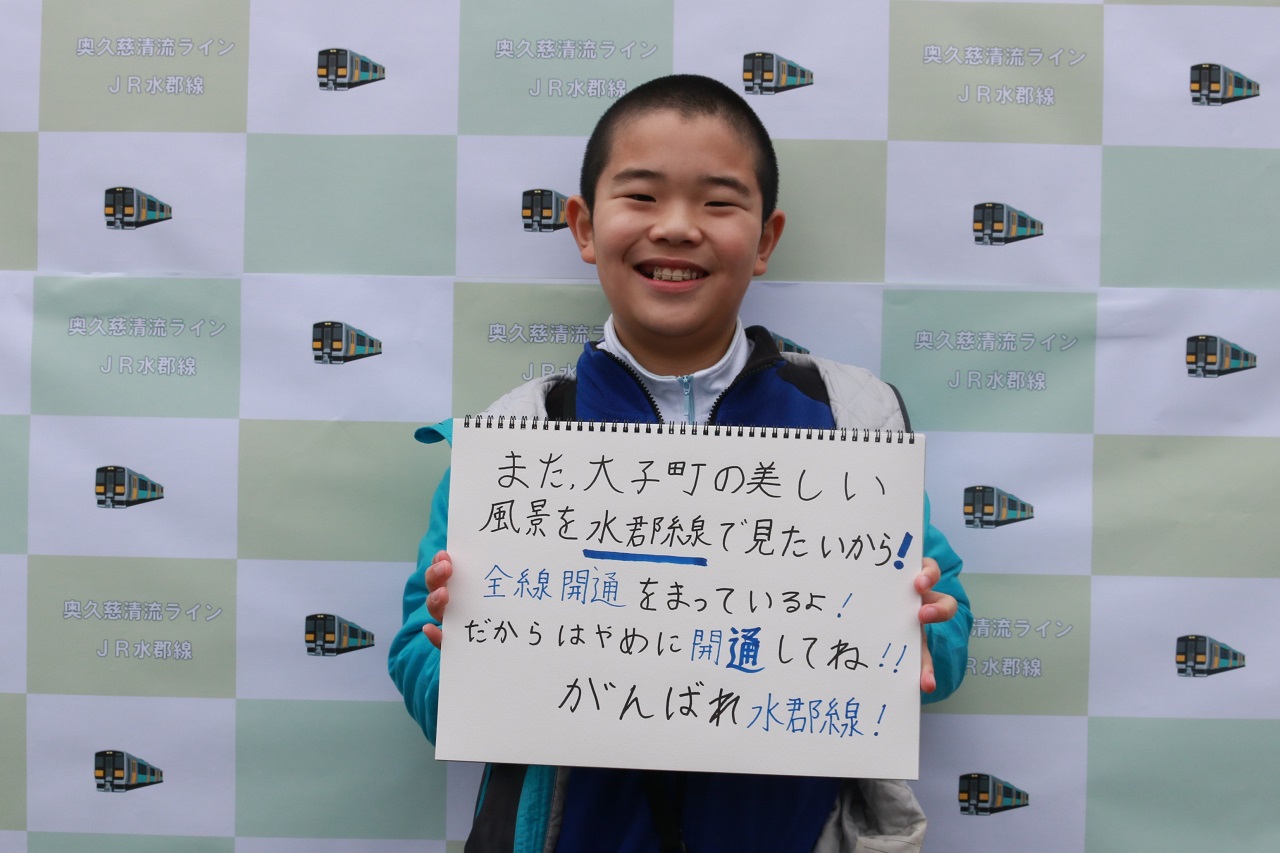 奥久慈清流ライン
JR水郡線
奥久慈清流ライン
JR水郡線
奥久慈清流ライン
JR水郡線
奥久慈清流ライン
JR水郡線
奥久慈清流
JR水
奥久慈清流ライン
JR水郡線
また,大子町の美しい
風景を水郡線で見たいから!
全線開通をまっているよ!
だからはやめに開通してね!!
がんばれ水郡線!
奥久慈清流ライン
JR水郡線
清流ライン
水郡線